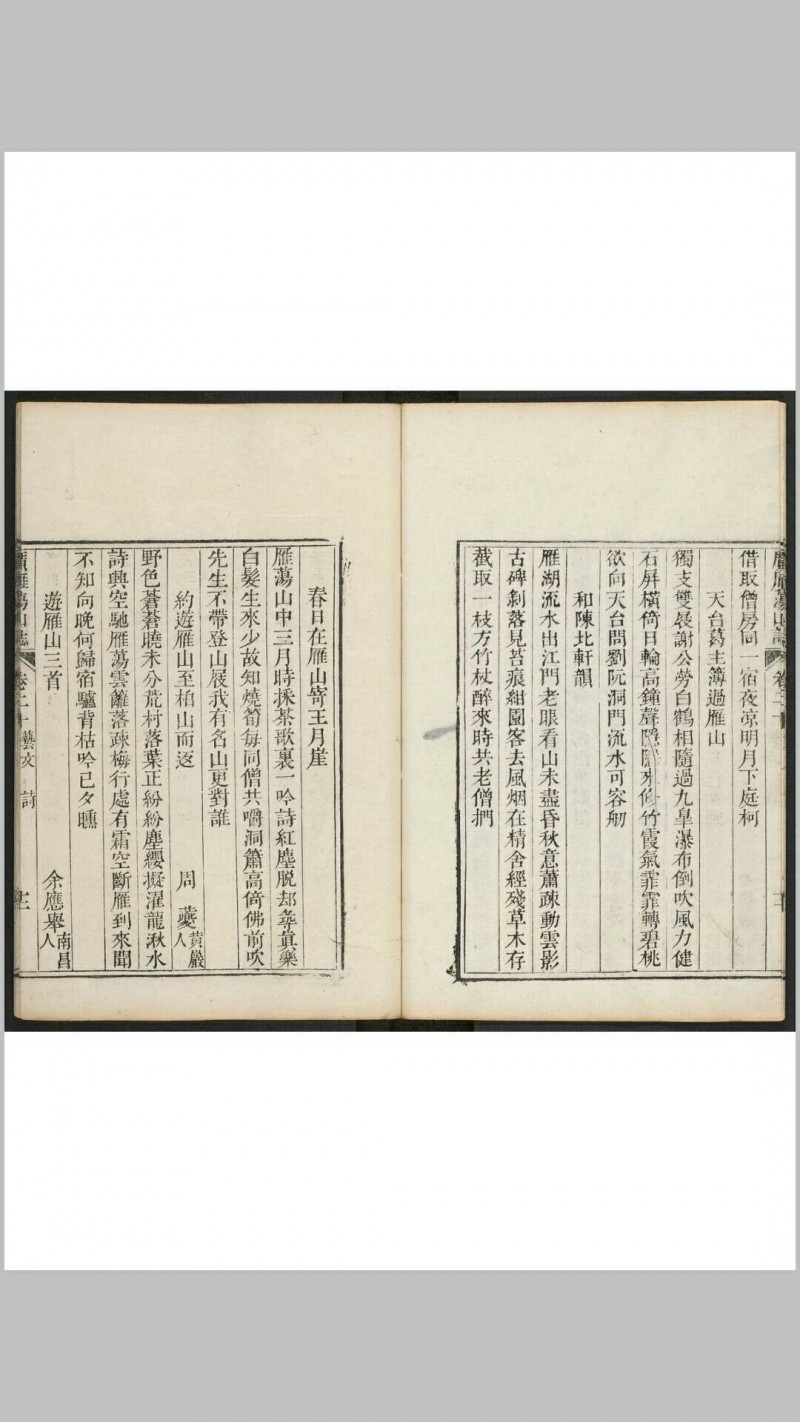 借取僧房同一宿夜凉明月下庭柯
天台葛主簿過雁山
獨支雙屐謝公勞白鶴相隨過九皐瀑布倒吹風力健
石屏橫倚日輪高鐘聲隱隱來修竹霞氣霏霏轉碧桃
欲向天台問劉阮洞門流水可容舠
和陳北軒韻
雁湖流水出江門老眼看山未盡昏秋意蕭疎動雲影
古碑剝落見苔痕紺園客去風烟在精舍經殘草木存
截取一枝方竹杖醉來時共老僧捫
春日在雁山寄王月崖
雁蕩山中三月時採茶歌裏一吟詩紅塵脫却尋真藥
白髮生來少故知燒筍每同僧共嚼洞簫高倚佛前吹
先生不帶登山屐我有名山更對誰
約遊雁山至柏山而返 周 夔 黃巖人
野色蒼蒼曉未分荒村落葉正紛紛塵纓擬濯龍湫水
詩興空馳雁蕩雲籬落疎梅行處有霜空斷雁到來聞
不知向晚何歸宿驢背枯吟已夕曛
遊雁山三首 余應舉 南昌人
廣雁蕩山誌 卷二十 藝文 詩